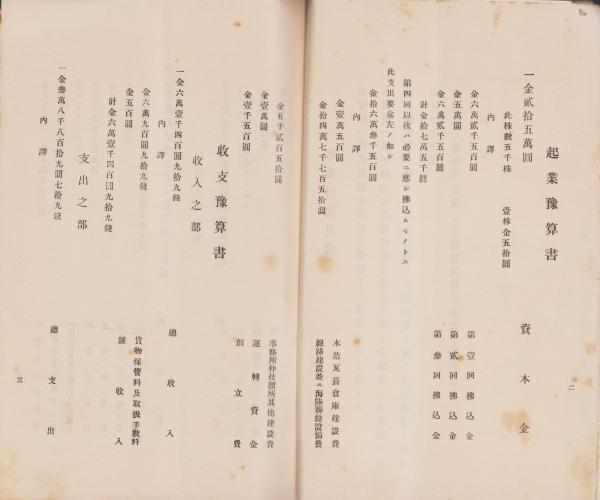 起業豫算書
一金貳拾五萬圓 資本金
此株數五千株 壹株金五拾圓
內譯
金六萬貳千五百圓 第壹回拂込金
金五萬圓 第貳回拂込金
金六萬貳千五百圓 第參回拂込金
計金拾七萬五千圓
第四回以後ハ必要ニ應シ拂込ムモノトス
此支出要途左ノ如シ
內譯
金拾六萬參千五百圓
金壹萬五百圓 木造瓦葺倉庫建設費
金拾四萬七千七百五拾圓 線路建設並ニ海陸聯絡設備費
二
金五千貳百五拾圓 事務所仲仕溜所其他建設費
金壹萬圓 運轉資金
金壹千五百圓 創立費
收支豫算書
收入之部
一金六萬壹千四百圓九拾九錢 總收入
內譯
金六萬九百圓九拾九錢 貨物保管料及取扱手數料
金五百圓 雜收入
計金六萬壹千四百圓九拾九錢
支出之部
一金參萬八千八百拾九圓七拾九錢 總支出
內譯
三